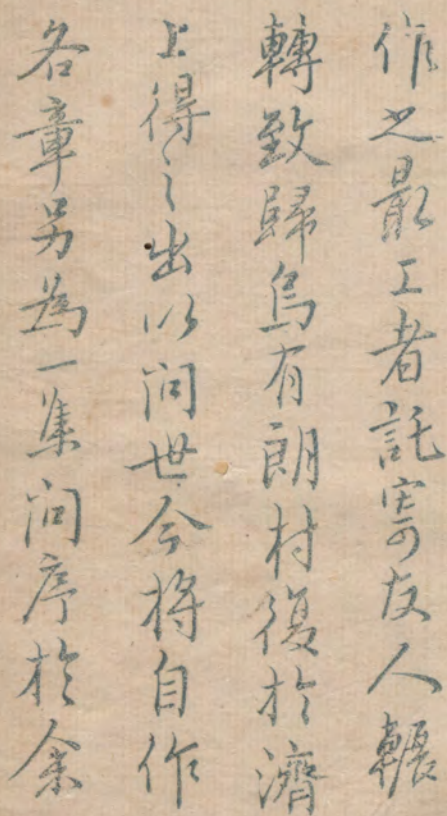 作之最工者託寄友人輾
轉致歸烏有朗村復於濟
上得之出以問世今將自作
各章另為一集問序於余